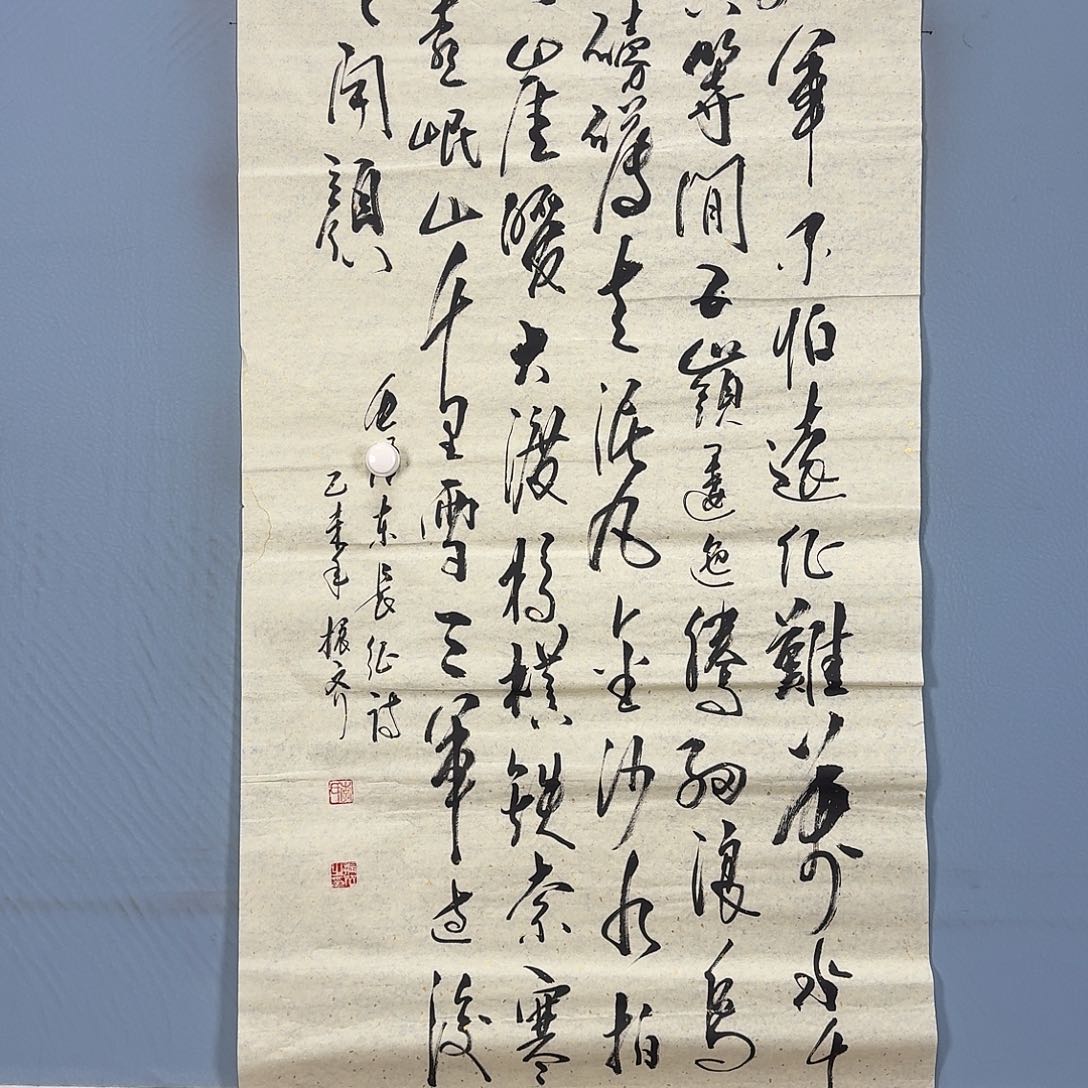 軍不怕遠征難萬水千
等閒五嶺逶迤騰細浪烏
磅礴走泥丸金沙水拍
崖暖大渡橋橫鐵索寒
喜岷山千里雪三軍過後
開顏
东長征詩
己未年振齐